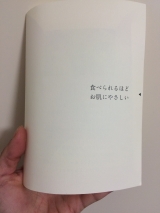 食べられるほど
お肌にやさしい